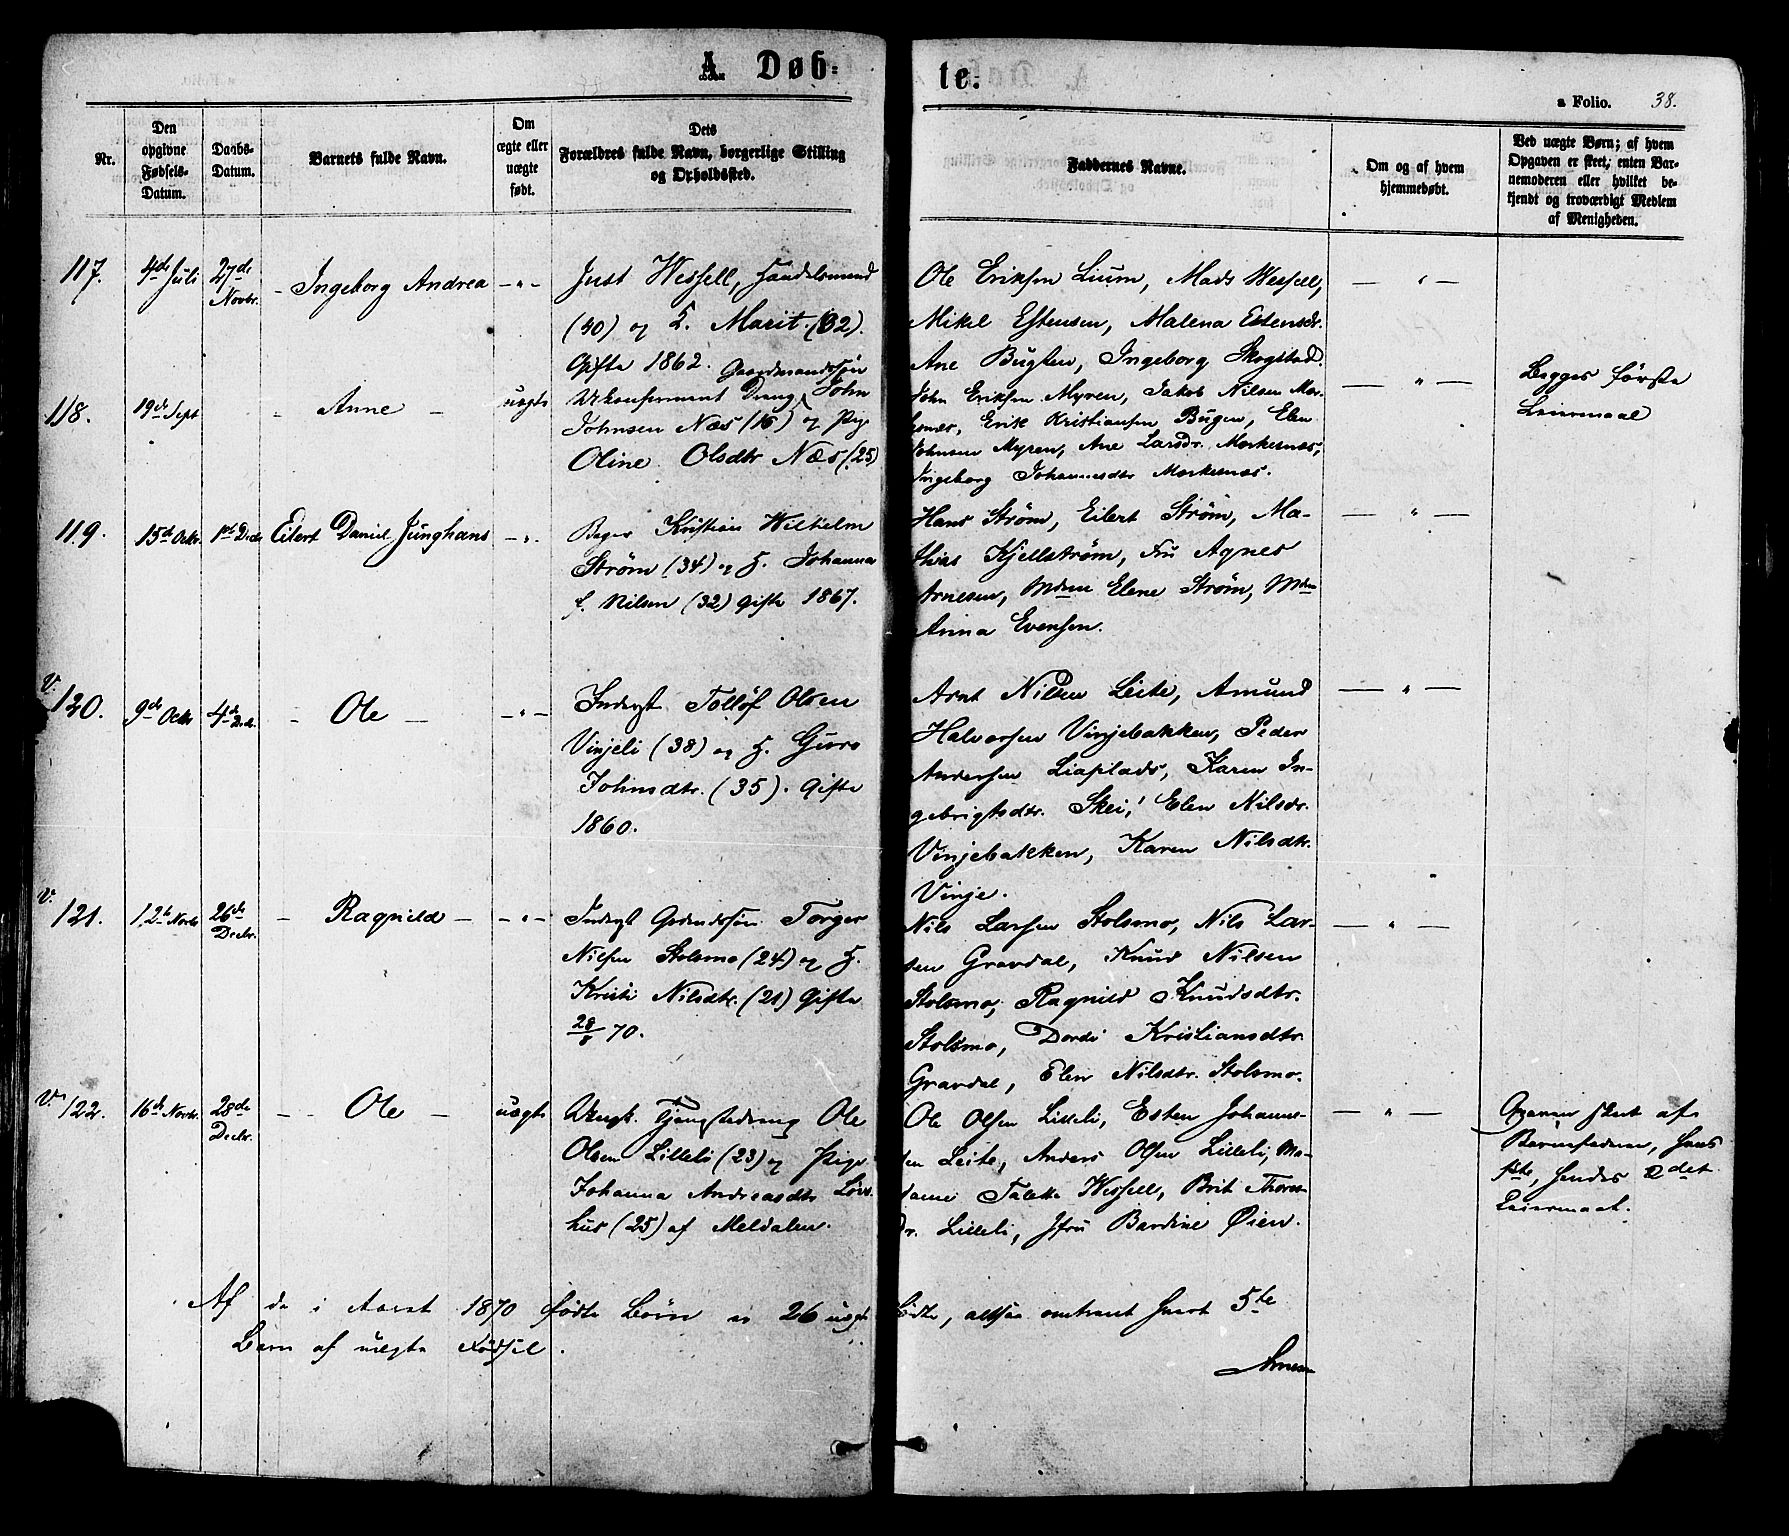 A Døb-
te.
a Folio. 38.
Nr.
Den
opgivne
Fødsels-
Datum.
Daabs-
Datum.
Barnets fulde Navn.
Om
ægte eller
uægte
født.
Dets
Forældres fulde Navn, borgerlige Stilling
og Opholdssted.
Faddernes Navne.
Om og af hvem
hjemmedøbt.
Ved uægte Børn; af hvem
Opgaven er skeet; enten Bar-
nemoderen eller hvilket be-
kjendt og troværdigt Medlem
af Menigheden.
117.
4de Juli
27de
Novbr.
- Ingeborg Andrea
-"-
Just Wessell, Handelsmand
(40) og H. Marit (32).
Gifte 1862.
Ole Eriksen Lium, Mads Wessell,
Mikel Estensen, Malena Estensdr.
Ane Bugten, Ingeborg Skogstad.
- " -
118.
19de Sept
- Anne -
uægte
Ukonfirmeret Dreng, Gaardmandssøn John
Johnsen Næs (16) og Pige
Oline Olsdtr Næs (25)
John Eriksen Myren, Jakob Nilsen Mor-
kenæs, Erik Kristiansen Bugen, Elen
Johnsen Myren, Ane Larsdr. Morkesnæs,
Ingeborg Johannesdtr Morkesnæs.
- " -
Begges første
Leiermaal
119.
15de Octbr.
1ste Decbr.
Eilert Daniel Junghans
-"-
Bager Kristian Wilhelm
Strøm (34) og H. Johanna
f. Nilsen (32) Gifte 1867.
Hans Strøm, Eilert Strøm, Ma-
thias Kjellstrøm, Fru Agnes
Arnesen, Mdme Elene Strøm, Mdm
Anna Evensen.
- " -
V.
120.
9de Octbr
4de Decbr.
- Ole -
-"-
Inderst Tolløf Olsen
Vinjeli (38) og H. Guro
Johnsdtr. (35). Gifte
1860.
Arnt Nilsen Leite, Amund
Halvorsen Vinjebakken, Peder
Andersen Liaplads, Karen In-
gebrigtsdtr. Skei, Elen Nilsdr.
Vinjebakken, Karen Nilsdtr.
Vinje.
- " -
V.
121.
12te Novbr
26de
Decbr.
- Ragnild -
-"-
Inderst Torger
Nilsen Stolsmo (24) og H.
Kristi Nilsdtr. (21) Gifte
28/8 70.
Nils Larsen Stolsmo, Nils Lar-
sen Gravdal, Knud Nilsen
Stolsmo, Ragnild Knudsdtr.
Stolsmo, Dordi Kristiansdtr
Gravdal, Elen Nilsdtr. Stolsmo.
- " -
V.
122.
16de Novbr.
28de
Decbr.
- Ole -
uægte
Ungk. Tjenestedreng Ole
Olsen Lilleli (23) og Pige
Johanna Andreasdtr Løvs-
hus (25) af Meldalen.
Ole Olsen Lilleli, Esten Johannes-
sen Leite, Anders Olsen Lilleli, Ma-
dame Talette Wessell, Brit Thores-
dr. Lilleli, Jfru Bardine Øien.
- " -
Opgaven skeet af
Barnefaderen, hans
1ste, hendes 2det
Leiermaal.
Af de i Aaret 1870 fødte Børn er 26 uægte
fødte, altsaa omtrent hvert 5te
Barn af uægte Fødsel.
Arnesen